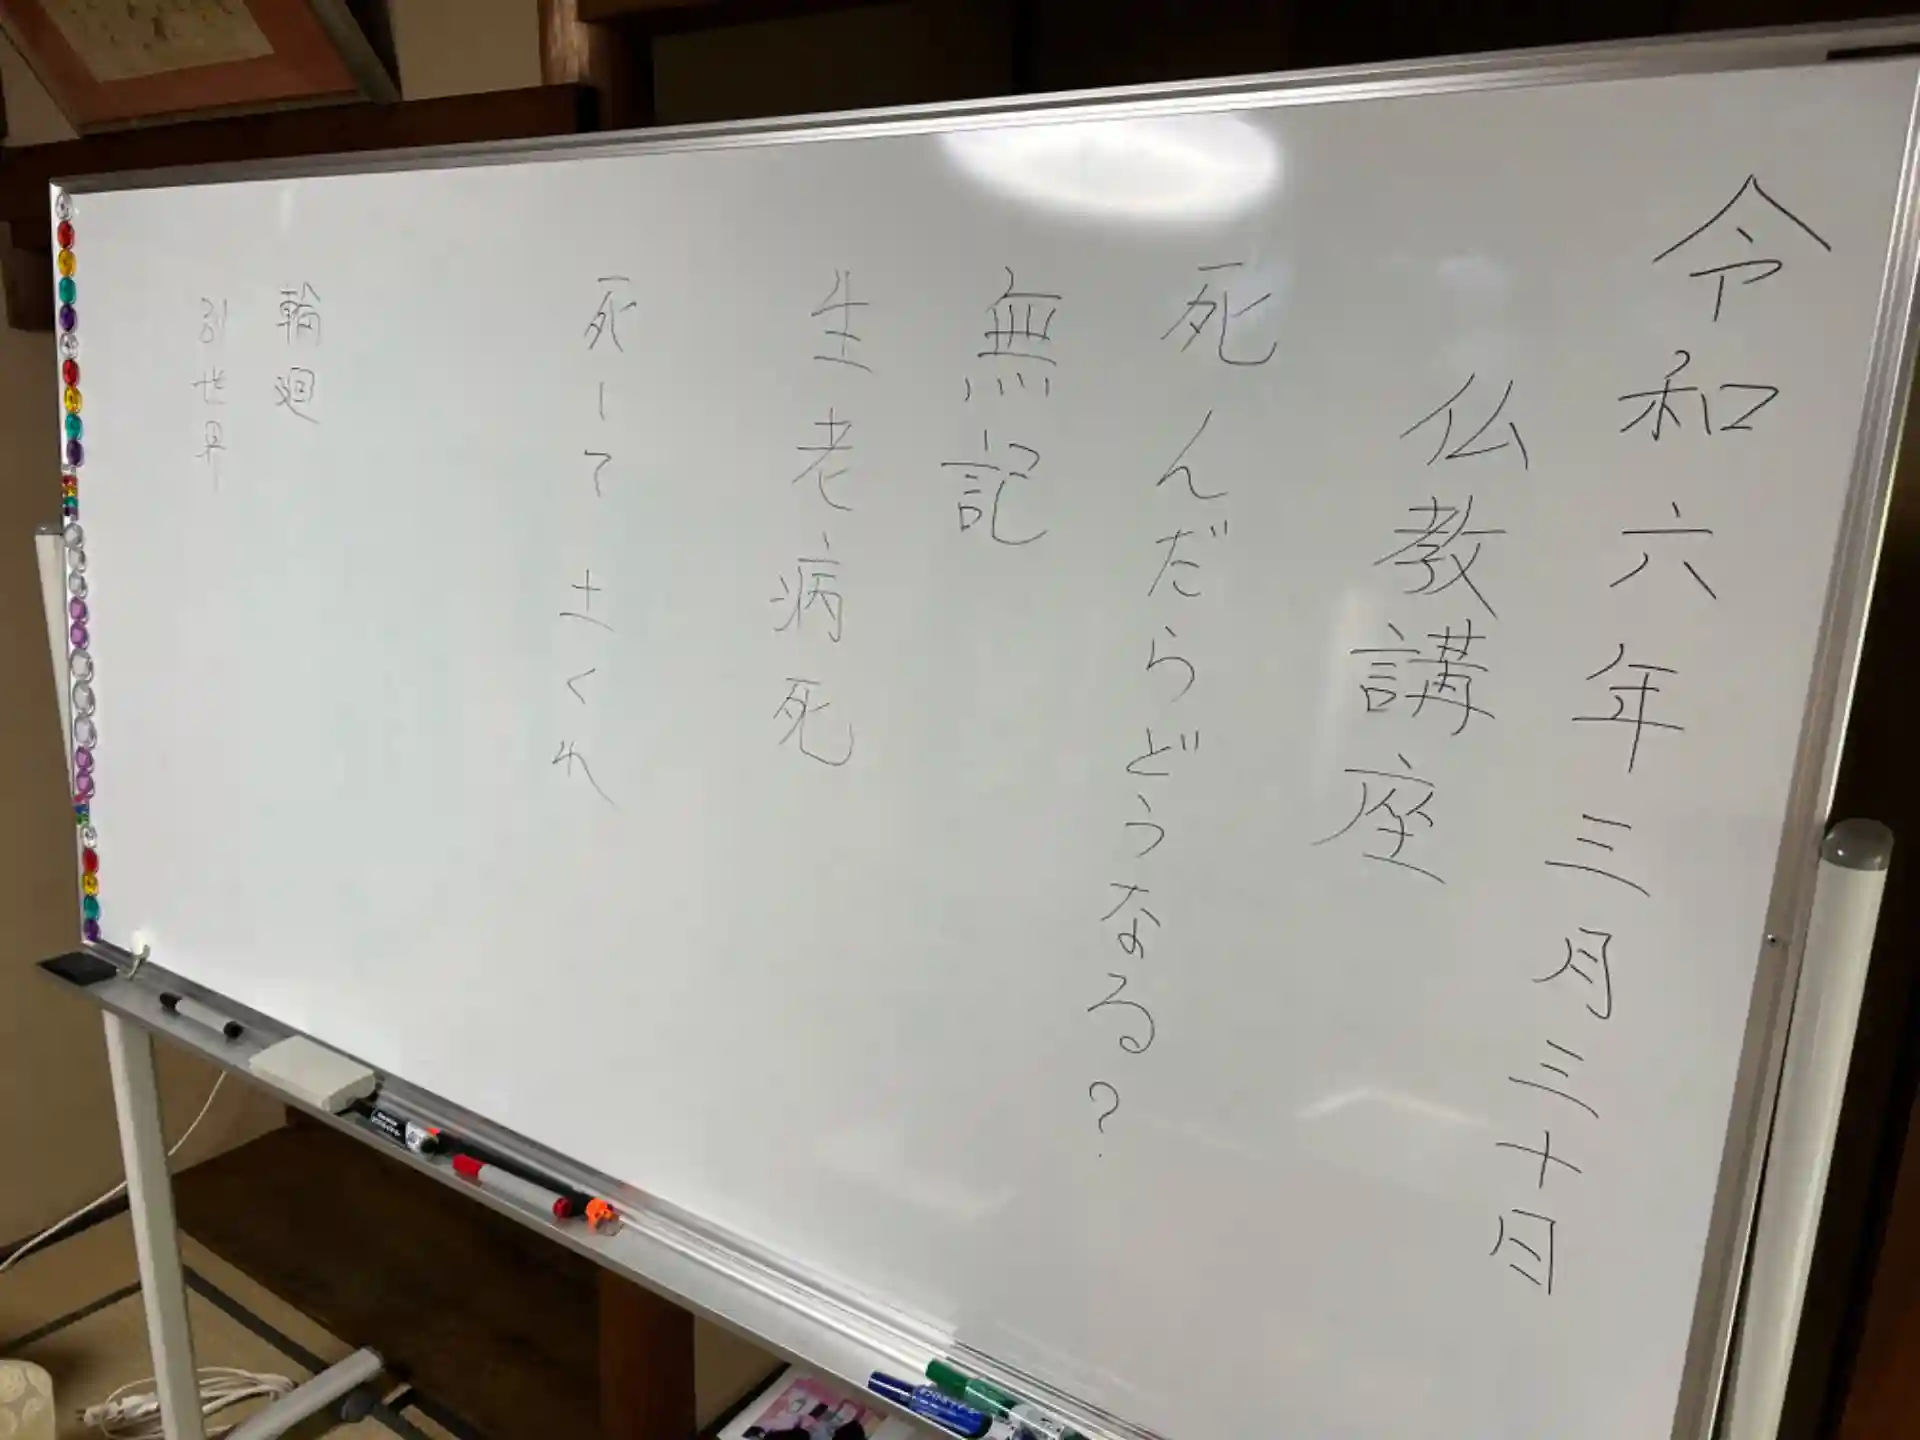 令和六年三月三十日
仏教講座
死んだらどうなる?
無記
生老病死
死して土くれ
輪廻
世界